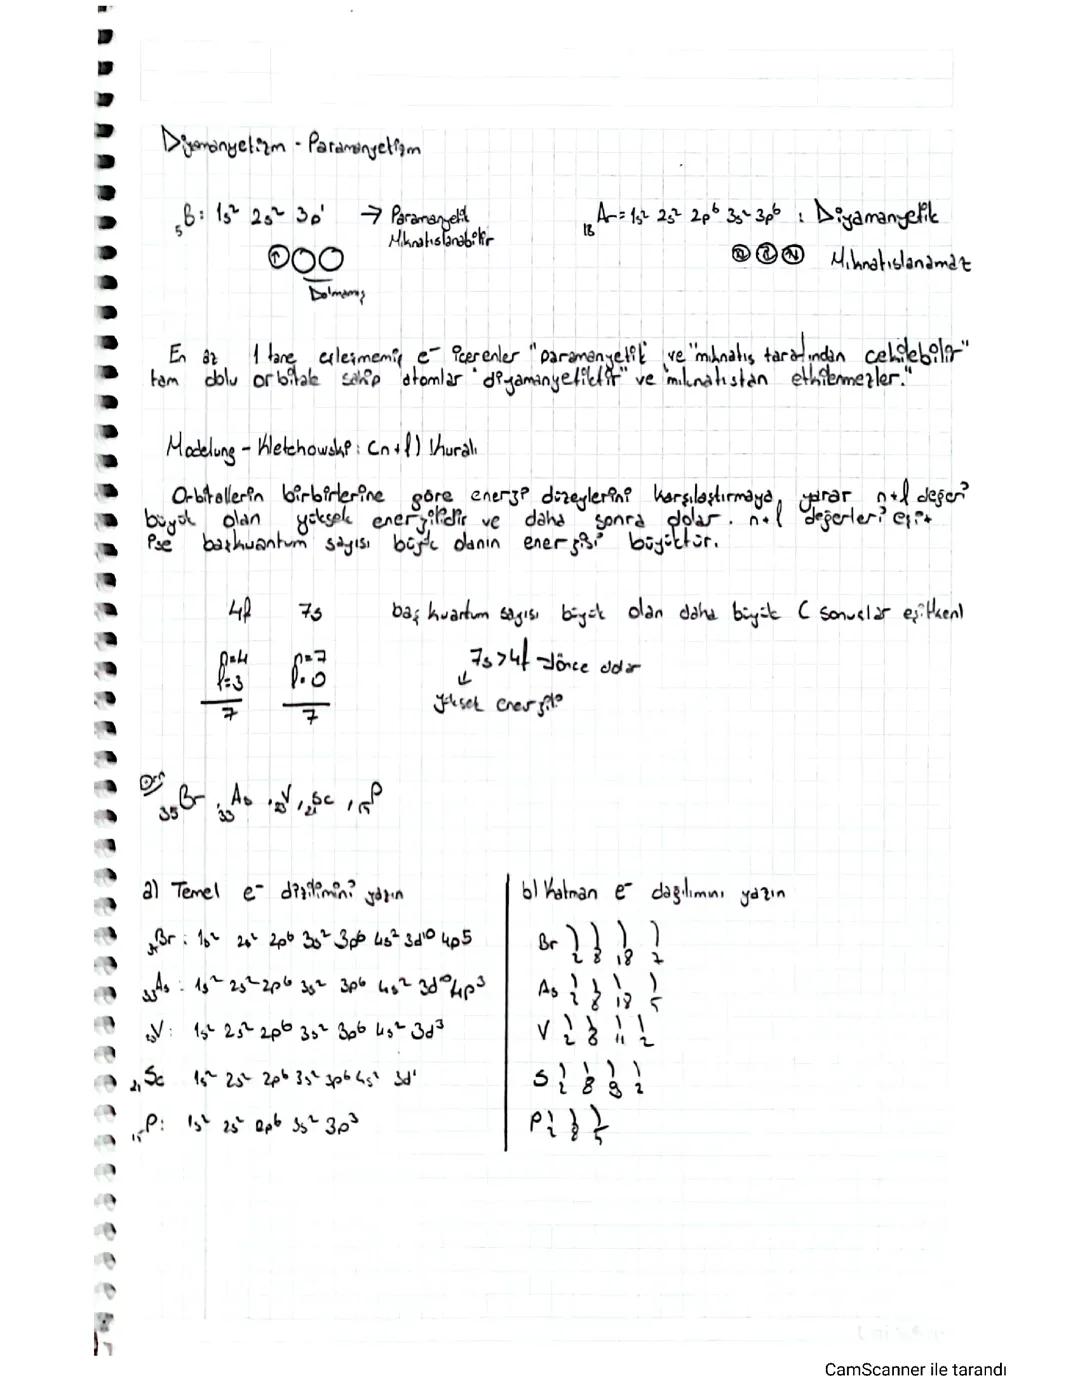 Diyamanyetizm - Paramanyetizm
5B: 1s² 2s² 3p¹ → Paramanyetik
Mıknatıslanabilir
Dolmamış
18Ar = 1s² 2s² 2p⁶ 3s² 3p⁶ : Diyamanyetik
Mıknatıslanamaz
En az 1 tane eşleşmemiş e⁻ içerenler "paramanyetik" ve "mıknatıs tarafından çekilebilir"
tam dolu orbitale sahip atomlar "diyamanyetiktir" ve "mıknatıstan etkilenmezler."
Madelung - Kletchowski : (n+l) Kuralı
Orbitallerin birbirlerine göre enerji düzeylerini karşılaştırmaya yarar n+l değeri
büyük olan yüksek enerjilidir ve daha sonra dolar. n+l değerleri eşit
ise başkuantum sayısı büyük olanın enerjisi büyüktür.
4f 7s baş kuantum sayısı büyük olan daha büyük ( sonuçlar eşitken)
n=4 n=7
l=3 l=0
7 7
7s > 4f → önce dolar
↓
yüksek enerjili
Örn
35Br, 33As, 23V, 21Sc, 15P
a) Temel e⁻ dizilimini yazın
35Br : 1s² 2s² 2p⁶ 3s² 3p⁶ 4s² 3d¹⁰ 4p5
33As : 1s² 2s² 2p⁶ 3s² 3p⁶ 4s² 3d¹⁰ 4p³
23V: 1s² 2s² 2p⁶ 3s² 3p⁶ 4s² 3d³
21Sc 1s² 2s² 2p⁶ 3s² 3p⁶ 4s² 3d¹
15P: 1s² 2s² 2p⁶ 3s² 3p³
b) Katman e⁻ dağılımını yazın
Br ) ) ) )
2 8 18 7
As ) ) ) )
2 8 18 5
V ) ) ) )
2 8 11 2
S ) ) ) )
2 8 9 2
P ) ) )
2 8 5
CamScanner ile tarandı